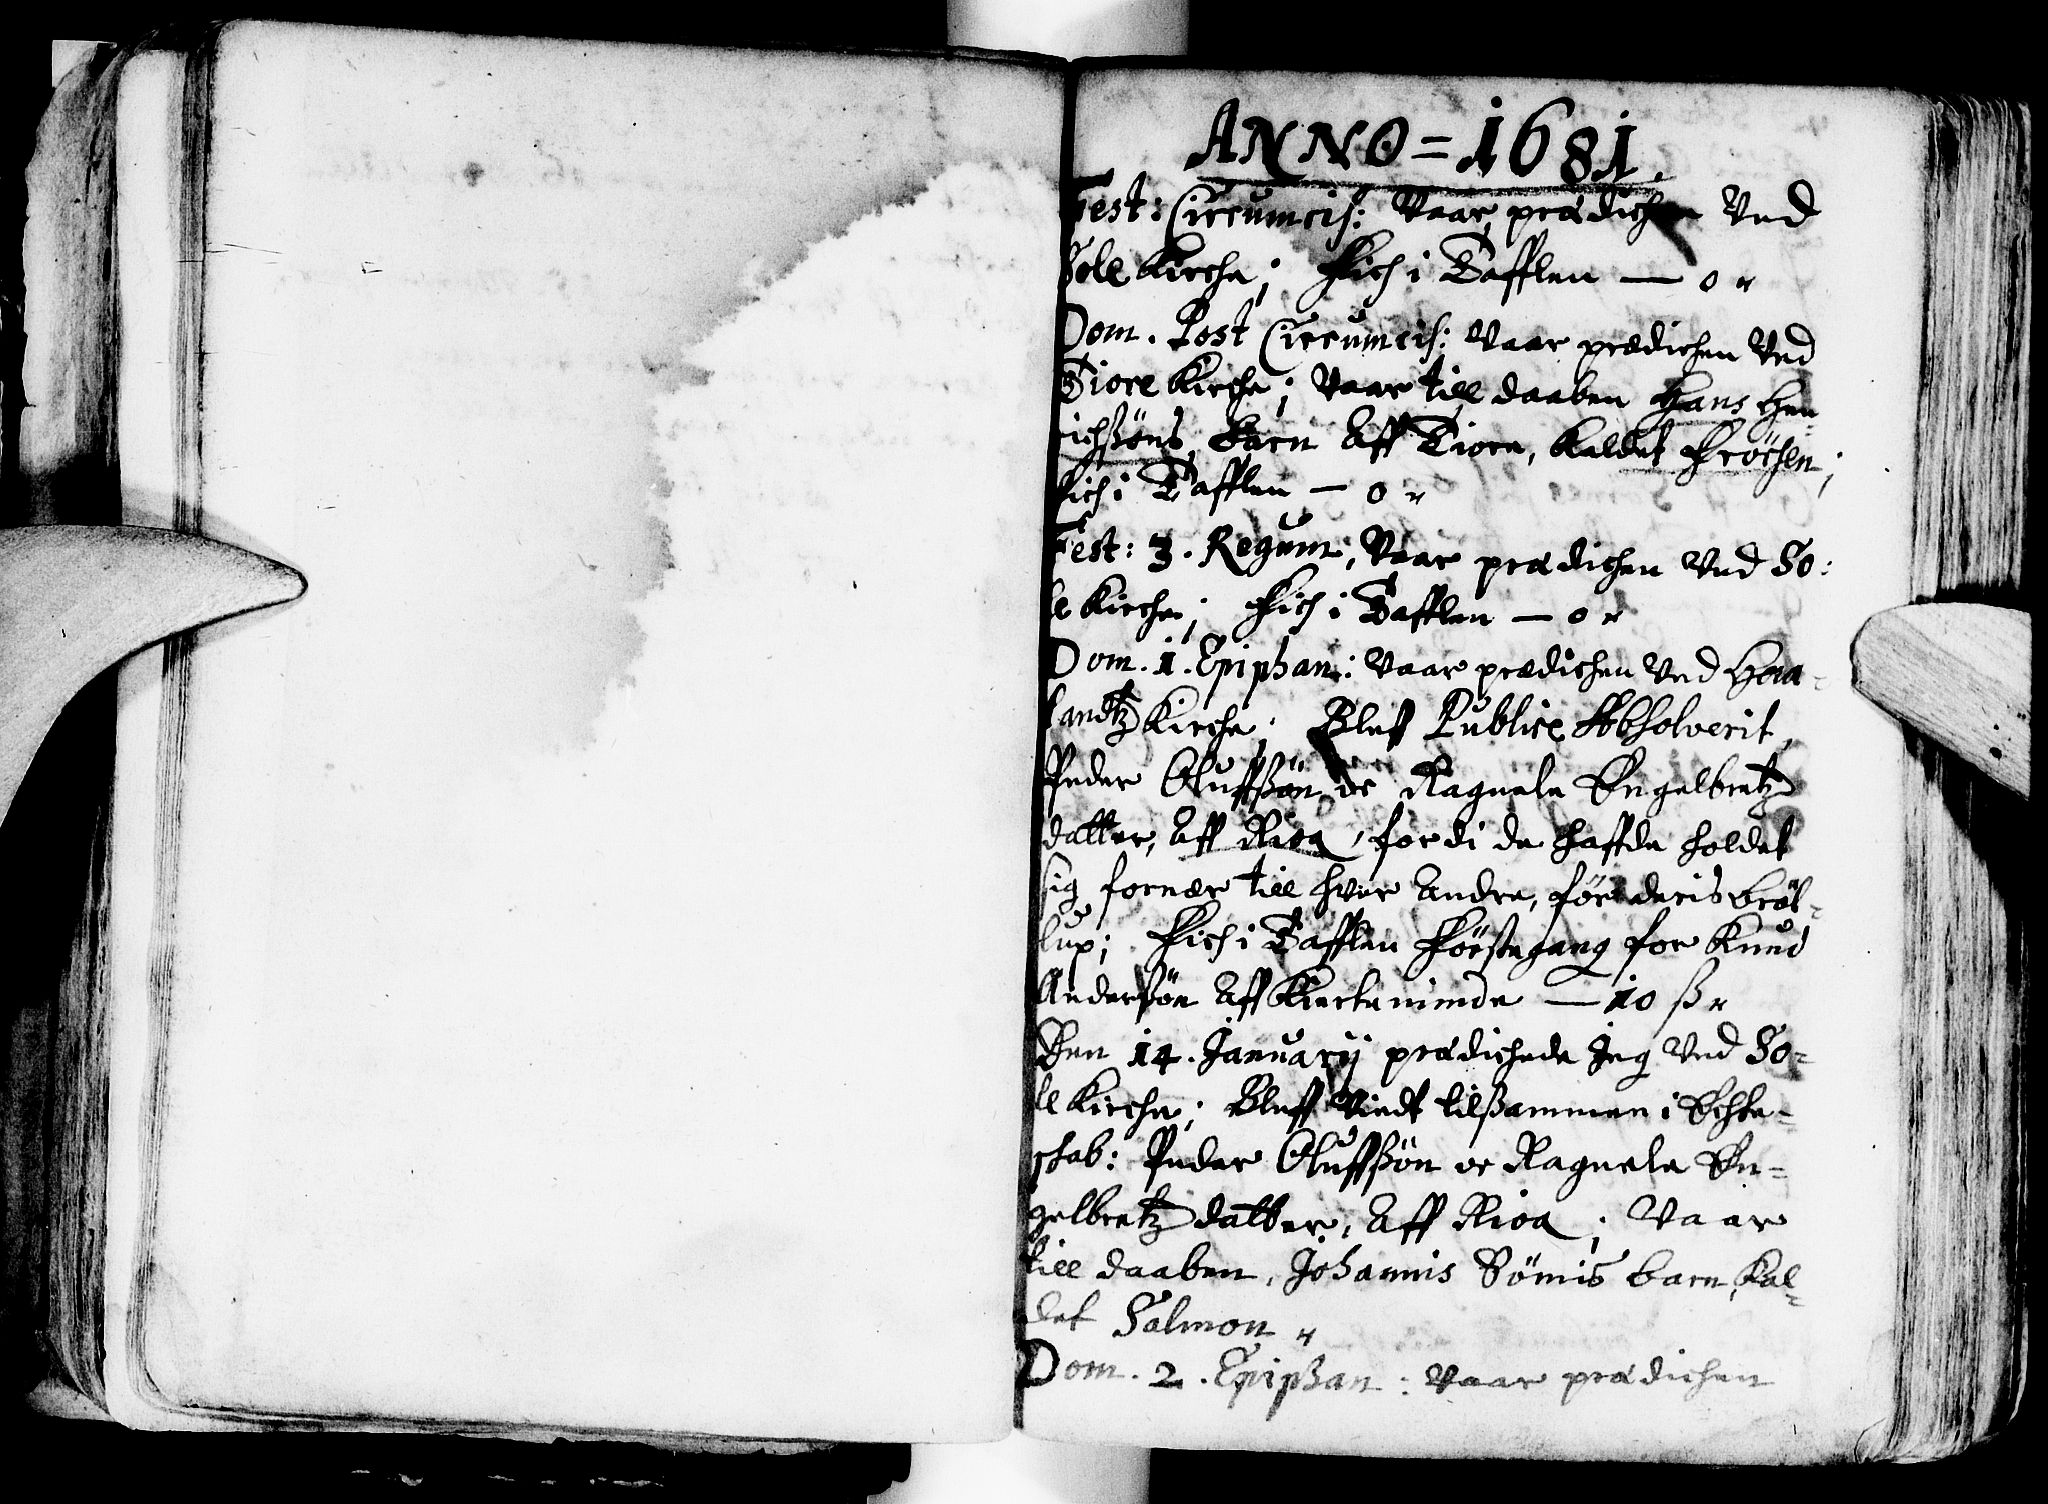 ANNO = 1681.
Fest: Circumcis: Vaar prædichen Ved
Sole Kirche; Fich i Tafflen — 0 "
Dom. Post Circumcis: Vaar prædichen Ved
Tiore Kirche; Vaar till daaben Hans Hen-
richßöns Barn Aff Tiore, kaldet Fröchen;
Fich i Tafflen — 0 "
Fest: 3. Regum; Vaar prædichen Ved So:
le Kirche; Fich i Tafflen — 0 "
Dom. 1. Epiphan: Vaar prædichen Ved Haa-
landtz Kirche; Bleff Publice Absolverit
Peder Oluffßön oc Ragnele Engelbretz
datter, Aff Rioa, fordi de haffde holdet
sig fornær till hver Andre, før deris bröl-
lup; Fich i Tafflen Förstegang for Knud
Anderßön Aff Kierteminde — 10 ß "
Den 14. January prædichede Jeg Ved So-
le Kirche; Bleff Viedt tilßammen i Echte-
skab: Peder Oluffßön oc Ragnele En-
gelbretz datter, Aff Rioa; Vaar
till daaben, Johannis Sömis barn, kal-
det Salmon "
Dom. 2. Epiphan: Vaar prædichen